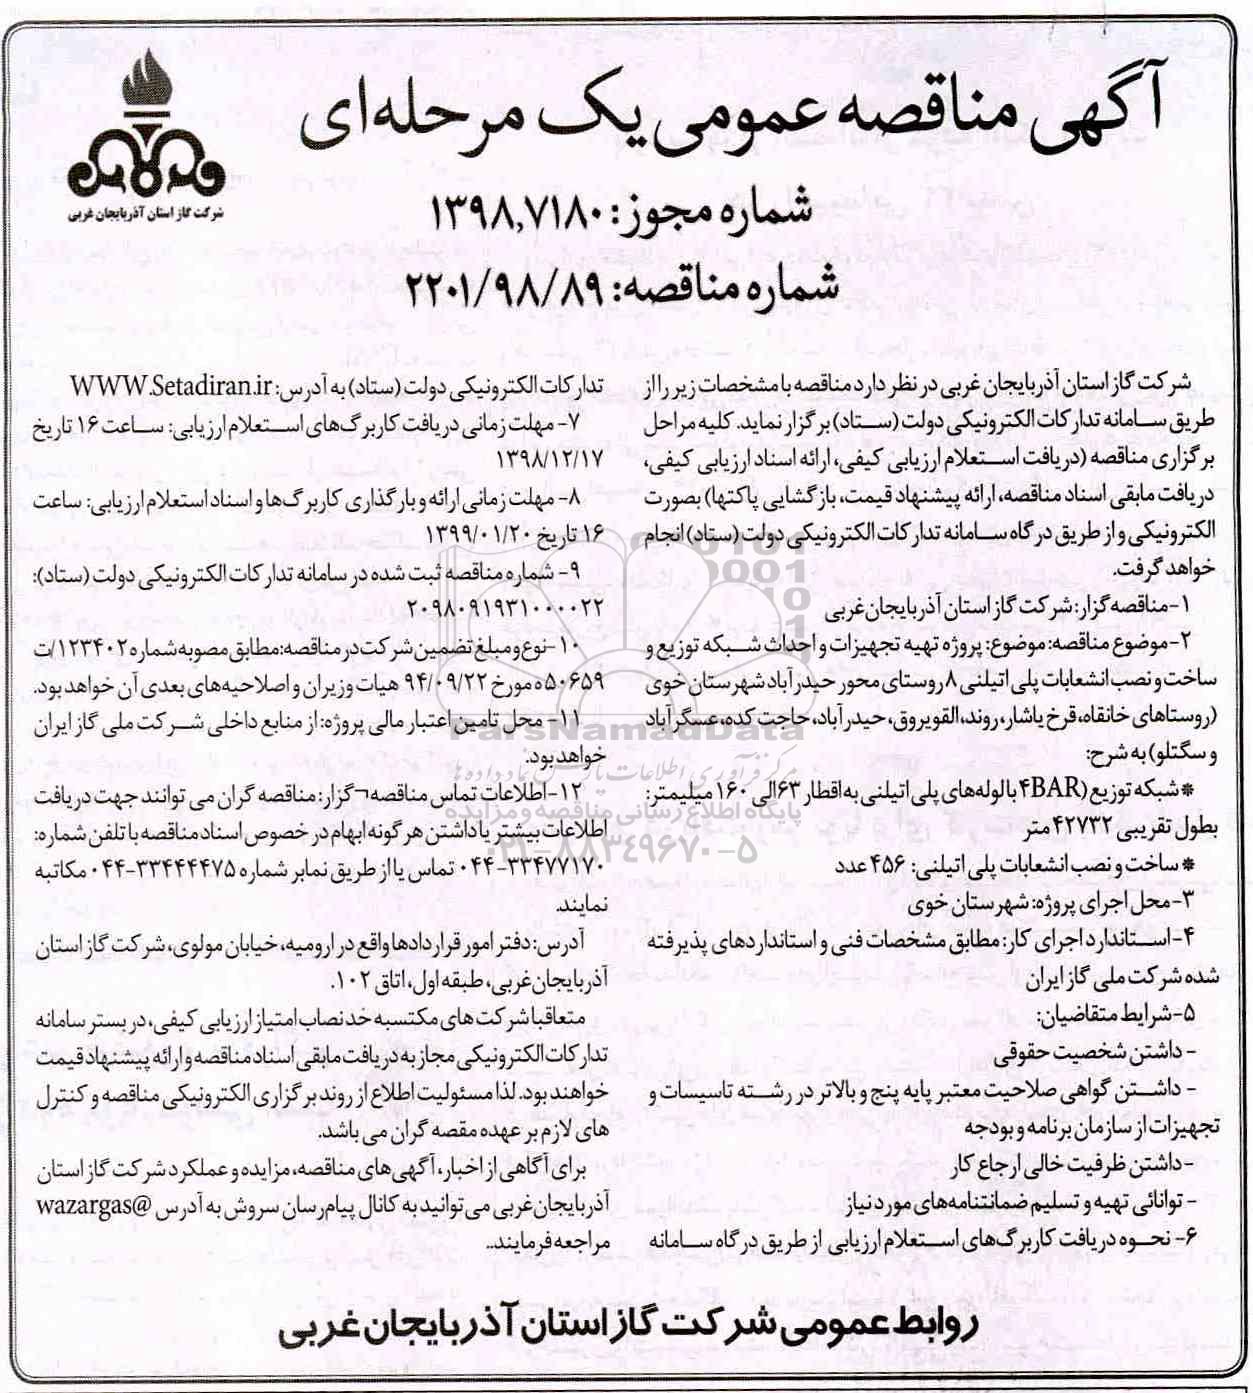 آگهی مناقصه عمومی یک مرحله‌ای
شرکت گاز استان آذربایجان غربی
شماره مجوز: ۱۳۹۸,۷۱۸۰
شماره مناقصه: ۲۲۰۱/۹۸/۸۹
شرکت گاز استان آذربایجان غربی در نظر دارد مناقصه با مشخصات زیر را از
طریق سامانه تدارکات الکترونیکی دولت (ستاد) برگزار نماید. کلیه مراحل
برگزاری مناقصه (دریافت استعلام ارزیابی کیفی، ارائه اسناد ارزیابی کیفی،
دریافت مابقی اسناد مناقصه، ارائه پیشنهاد قیمت، بازگشایی پاکتها) بصورت
الکترونیکی و از طریق درگاه سامانه تدارکات الکترونیکی دولت (ستاد) انجام
خواهد گرفت.
۱-مناقصه گزار: شرکت گاز استان آذربایجان‌غربی
۲-موضوع مناقصه: موضوع: پروژه تهیه تجهیزات و احداث شبکه توزیع و
ساخت و نصب انشعابات پلی اتیلنی ۸ روستای محور حیدرآباد شهرستان خوی
(روستاهای خانقاه، قرخ یاشار، روند، القویروق، حیدرآباد، حاجت کده، عسگرآباد
و سگتلو) به شرح:
*شبکه توزیع (۴BAR با لوله‌های پلی اتیلنی به اقطار ۶۳الی ۱۶۰ میلیمتر:
بطول تقریبی ۴۲۷۳۲ متر
* ساخت و نصب انشعابات پلی اتیلنی: ۴۵۶ عدد
۳-محل اجرای پروژه: شهرستان خوی
۴-استاندارد اجرای کار: مطابق مشخصات فنی و استانداردهای پذیرفته
شده شرکت ملی گاز ایران
۵-شرایط متقاضیان:
- داشتن شخصیت حقوقی
- داشتن گواهی صلاحیت معتبر پایه پنج و بالاتر در رشته تاسیسات و
تجهیزات از سازمان برنامه و بودجه
-داشتن ظرفیت خالی ارجاع کار
- توانائی تهیه و تسلیم ضمانتنامه‌های مورد نیاز
۶- نحوه دریافت کاربرگ‌های استعلام ارزیابی از طریق درگاه سامانه
تدارکات الکترونیکی دولت (ستاد) به آدرس: WWW.Setadiran.ir
۷- مهلت زمانی دریافت کاربرگ‌های استعلام ارزیابی: ساعت ۱۶ تاریخ
۱۳۹۸/۱۲/۱۷
۸- مهلت زمانی ارائه و بارگذاری کاربرگ‌ها و اسناد استعلام ارزیابی: ساعت
۱۶ تاریخ ۱۳۹۹/۰۱/۲۰
۹- شماره مناقصه ثبت شده در سامانه تدارکات الکترونیکی دولت (ستاد):
۲۰۹۸۰۹۱۹۳۱۰۰۰۰۲۲
۱۰-نوع و مبلغ تضمین شرکت در مناقصه: مطابق مصوبه شماره ۱۲۳۴۰۲/ت
۵۰۶۵۹ه مورخ ۹۴/۰۹/۲۲ هیات وزیران و اصلاحیه‌های بعدی آن خواهد بود.
۱۱- محل تامین اعتبار مالی پروژه: از منابع داخلی شرکت ملی گاز ایران
خواهد بود.
۱۲-اطلاعات تماس مناقصه¬گزار: مناقصه گران می توانند جهت دریافت
اطلاعات بیشتر یا داشتن هر گونه ابهام در خصوص اسناد مناقصه با تلفن شماره:
۰۴۴-۳۳۴۷۷۱۷۰ تماس یا از طریق نمابر شماره ۳۳۴۴۴۴۷۵-۰۴۴ مکاتبه
نمایند.
آدرس: دفتر امور قراردادها واقع در ارومیه، خیابان مولوی، شرکت گاز استان
آذربایجان‌غربی، طبقه اول، اتاق ۱۰۲.
متعاقبا شرکت های مکتسبه حد نصاب امتیاز ارزیابی کیفی، در بستر سامانه
تدارکات الکترونیکی مجاز به دریافت مابقی اسناد مناقصه و ارائه پیشنهاد قیمت
خواهند بود. لذا مسئولیت اطلاع از روند برگزاری الکترونیکی مناقصه و کنترل
های لازم بر عهده مقصه گران می باشد.
برای آگاهی از اخبار، آگهی‌های مناقصه، مزایده و عملکرد شرکت گاز استان
آذربایجان‌غربی می‌توانید به کانال پیام‌رسان سروش به آدرس @wazargas
مراجعه فرمایند..
روابط عمومی شرکت گاز استان آذربایجان غربی
ParsNamadData
مرکز فرآوری اطلاعات پارس نماد داده ها
پایگاه اطلاع رسانی مناقصه و مزایده
۰۲۱-۸۸۳۴۹۶۷۰-۵